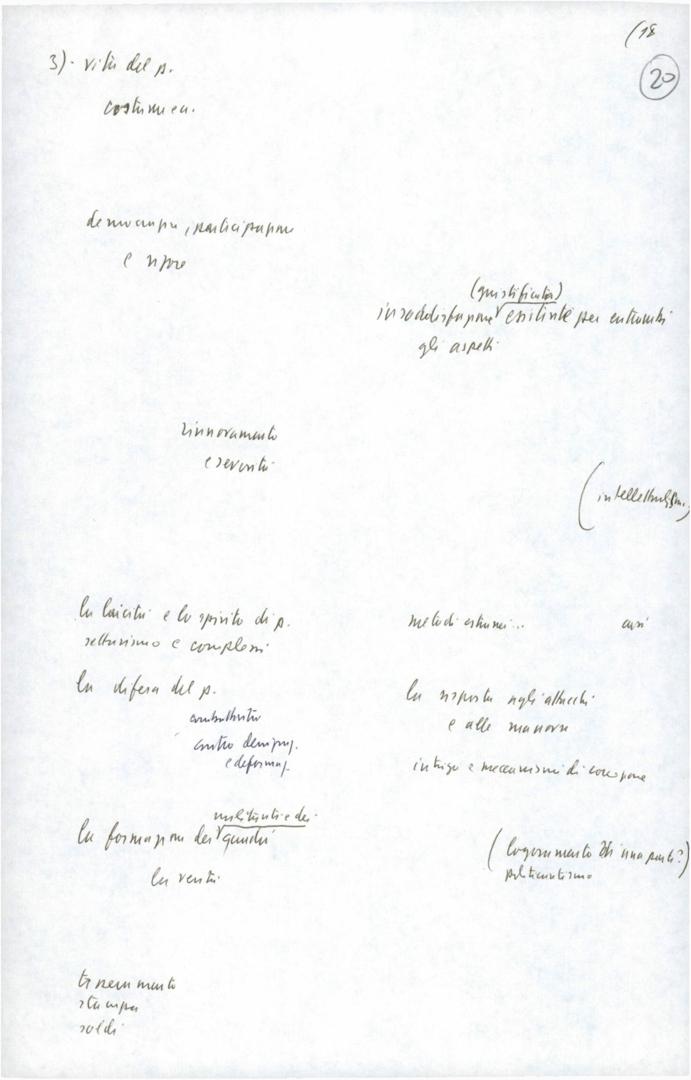 (18
20
3)· vita del p.
costume ecc.
democrazia, partecipazione
e rigore
(giustificata)
insoddisfazione esistente per entrambi
gli aspetti
rinnovamento
e severità
(intellettualism.)
la laicità e lo spirito di p.
settarismo e complessi
metodi estranei...
casi
la difesa del p.
combattività
contro denigraz.
e deformaz.
la risposta agli attacchi
e alle manovre
intrigo e meccanismi di corruzione
militanti e dei
la formazione dei quadri
la verità
(logoramento di una parte?)
politicantismo
tesseramento
stampa
soldi